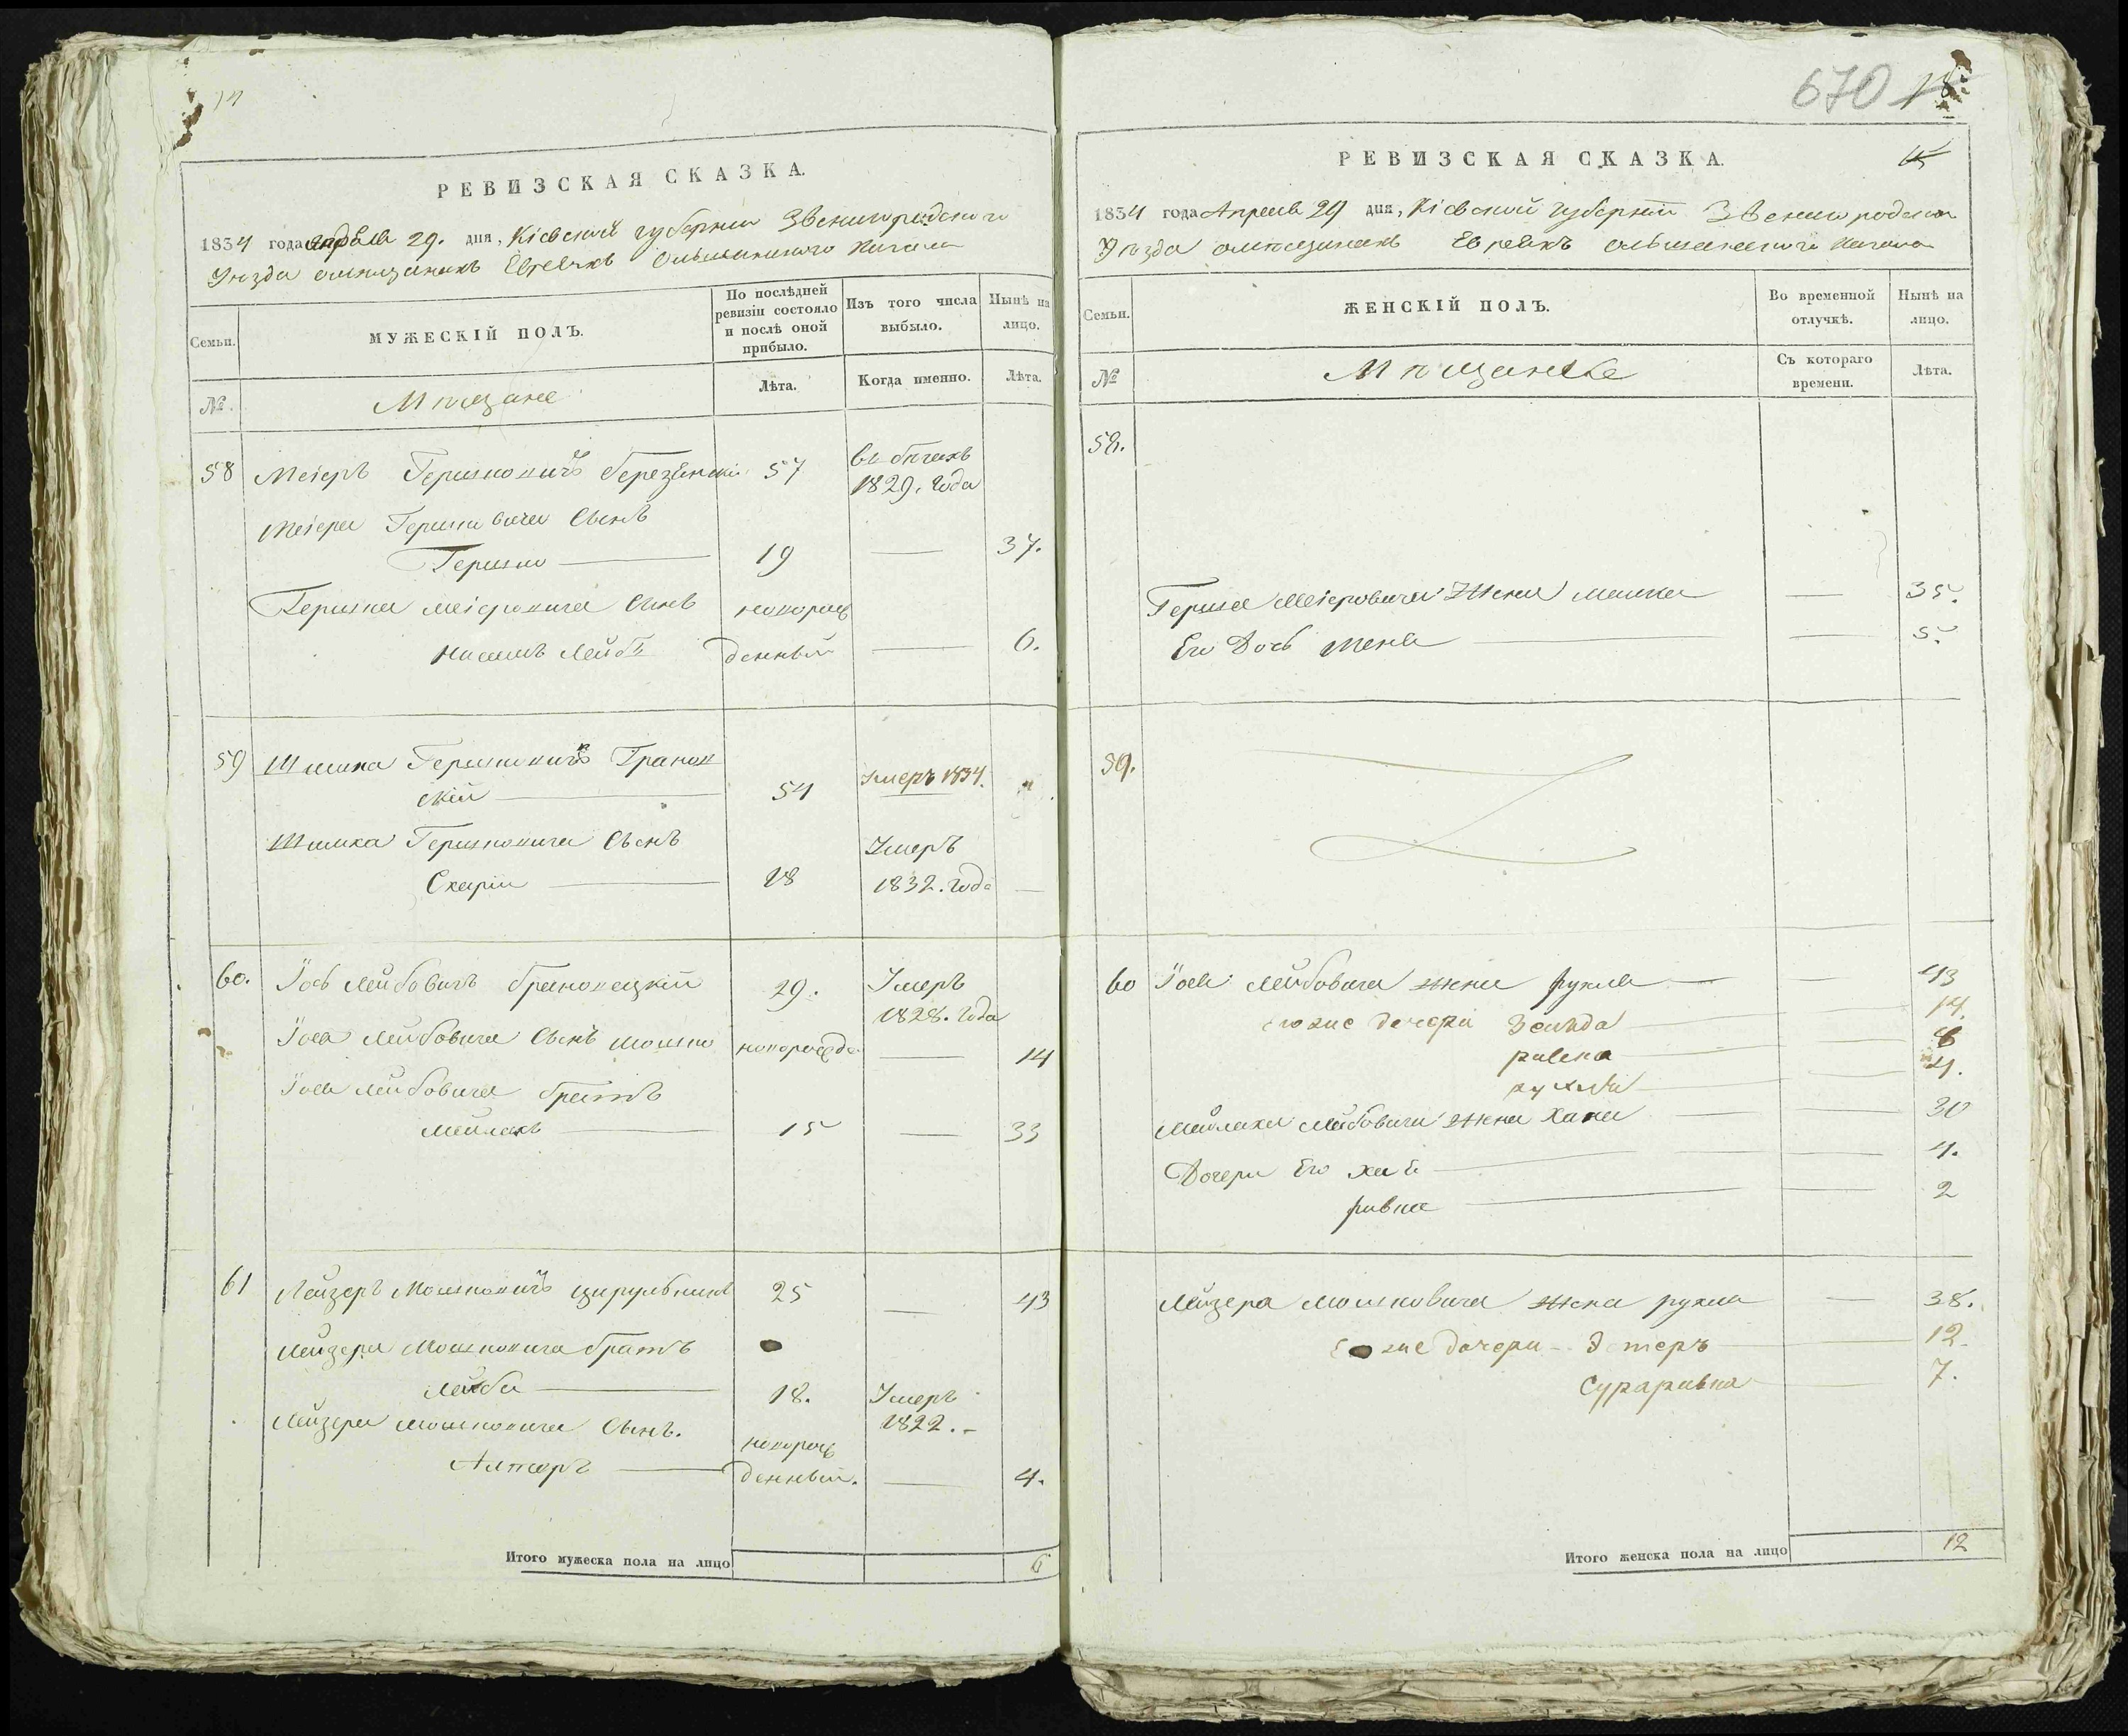 14
РЕВИЗСКАЯ СКАЗКА.
1834 года апреля 29. дня, Кіевской губерніи Звенигородского
Уезда о мещанахъ Евреяхъ Ольшанского Кагала
Семьи.
МУЖЕСКІЙ ПОЛЪ.
По послѣдней ревизіи состояло и послѣ оной прибыло.
Изъ того числа выбыло.
Нынѣ на лицо.
№.
Мещане
Лѣта.
Когда именно.
Лѣта.
58 Меіеръ Гершковичъ Березинскій 57 въ бегахъ
1829. Года
Меіера Гершковича Сынъ
Гершко 19 — 37.
Гершка Меіеровича Сынъ новорож
Лейбъ денный — 6.
59 Шмика Гершковичъ
скій 54 Умеръ 1834.
Шмика Гершковича Сынъ Умеръ
18 1832. года —
60. Іось Лейбовичъ 29. Умеръ
1828. Года
Іося Лейбовича Сынъ Мошко новорожде — 14
Іося Лейбовича братъ
Мейлахъ 15 — 33
61 Лейзеръ Мошковичъ Цирульникъ 25 — 43
Лейзера Мошковича братъ
Лейба 18. Умеръ
1822.
Лейзера Мошковича Сынъ. новорож
Алтеръ денный. — 4.
Итого мужеска пола на лицо 6
670 18
15
РЕВИЗСКАЯ СКАЗКА.
1834 года Апреля 29 дня, Кіевской губерніи Звенигородского
Уезда о мещанахъ Евреяхъ Ольшанского Кагала
Семьи.
ЖЕНСКІЙ ПОЛЪ.
Во временной отлучкѣ.
Нынѣ на лицо.
№
Мещанке
Съ котораго времени.
Лѣта.
58.
Гершка Меіеровича Жена — 35.
Его Дочь — 5.
59.
60 Іося Лейбовича жена Рухля — 43
его же дочери Зельда — 14.
— 4.
Мейлаха Лейбовича жена Хана — 30
Дочери Его — 4.
Ривка — 2
Лейзера Мошковича жена Рухля — 38.
его же дочери - Эстеръ — 12.
Сураривка — 7.
Итого женска пола на лицо 12